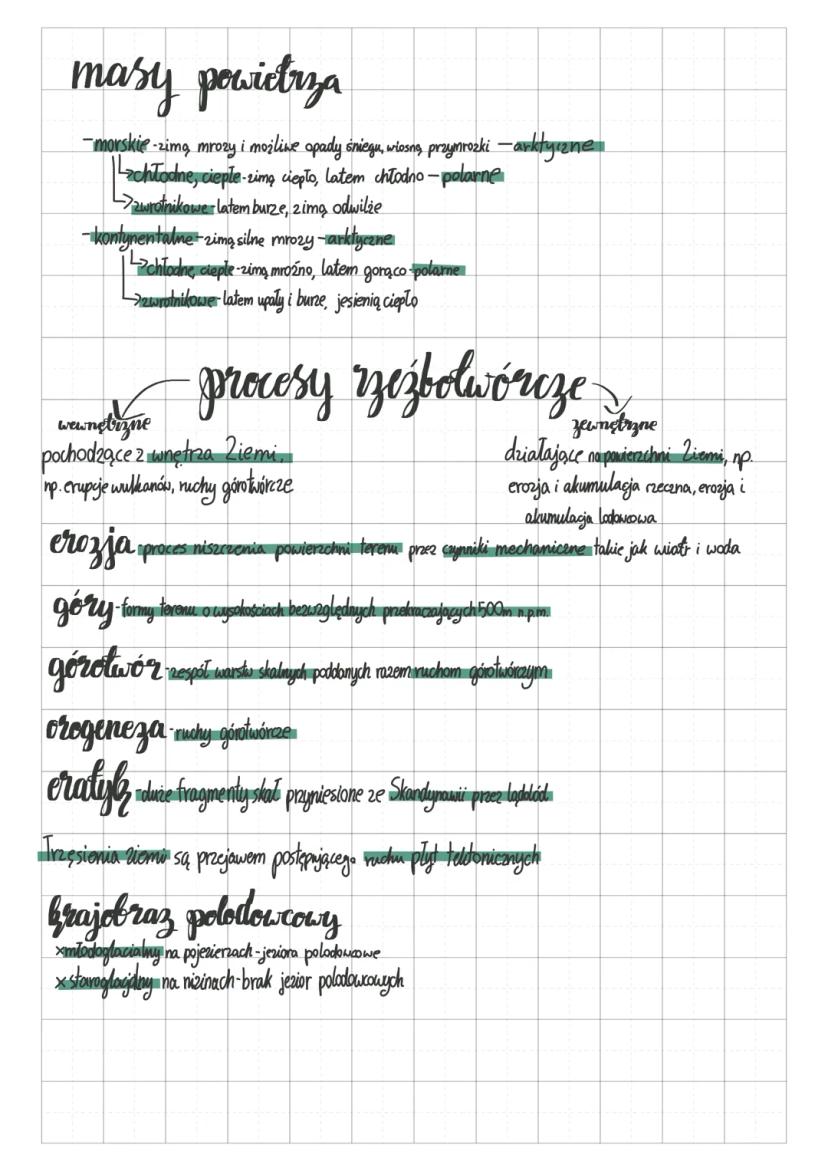 masy powietrza
-morskie-zimą mrozy i możliwe opady śniegu, wiosną przymrozki -arktyczne
chłodne, ciepłe-zimą ciepło, latem chłodno-polarne
zwrotnikowe-latem burze, zimą odwilże
-kontynentalne-zimą silne mrozy-arktyczne
chłodne, ciepłe-zimą mroźno, latem gorąco-polarne
zwrotnikowe-latem upały i burze, jesienią ciepło
procesy rzeźbotwórcze
wewnętrzne
pochodzące z wnętrza Ziemi,
np. erupcje wulkanów, ruchy górotwórcze
zewnętrzne
działające na powierzchni Ziemi, np.
erozja i akumulacja rzeczna, erozja i
akumulacja lodowcowa
erozja-proces niszczenia powierzchni terenu przez czynniki mechaniczne takie jak wiatr i woda
góry-formy terenu o wysokościach bezwzględnych przekraczających 500m n.p.m.
górotwór-zespół warstw skalnych poddanych razem ruchom górotwórczym
orogeneza-ruchy górotwórcze
eratyk-duże fragmenty skał przyniesione ze Skandynawii przez lądolód
Trzęsienia ziemi są przejawem postępującego ruchu płyt tektonicznych
krajobraz polodowcowy
xmłodoglacjalny na pojezierzach-jeziora polodowcowe
x staroglacjalny na nizinach-brak jezior polodowcowych